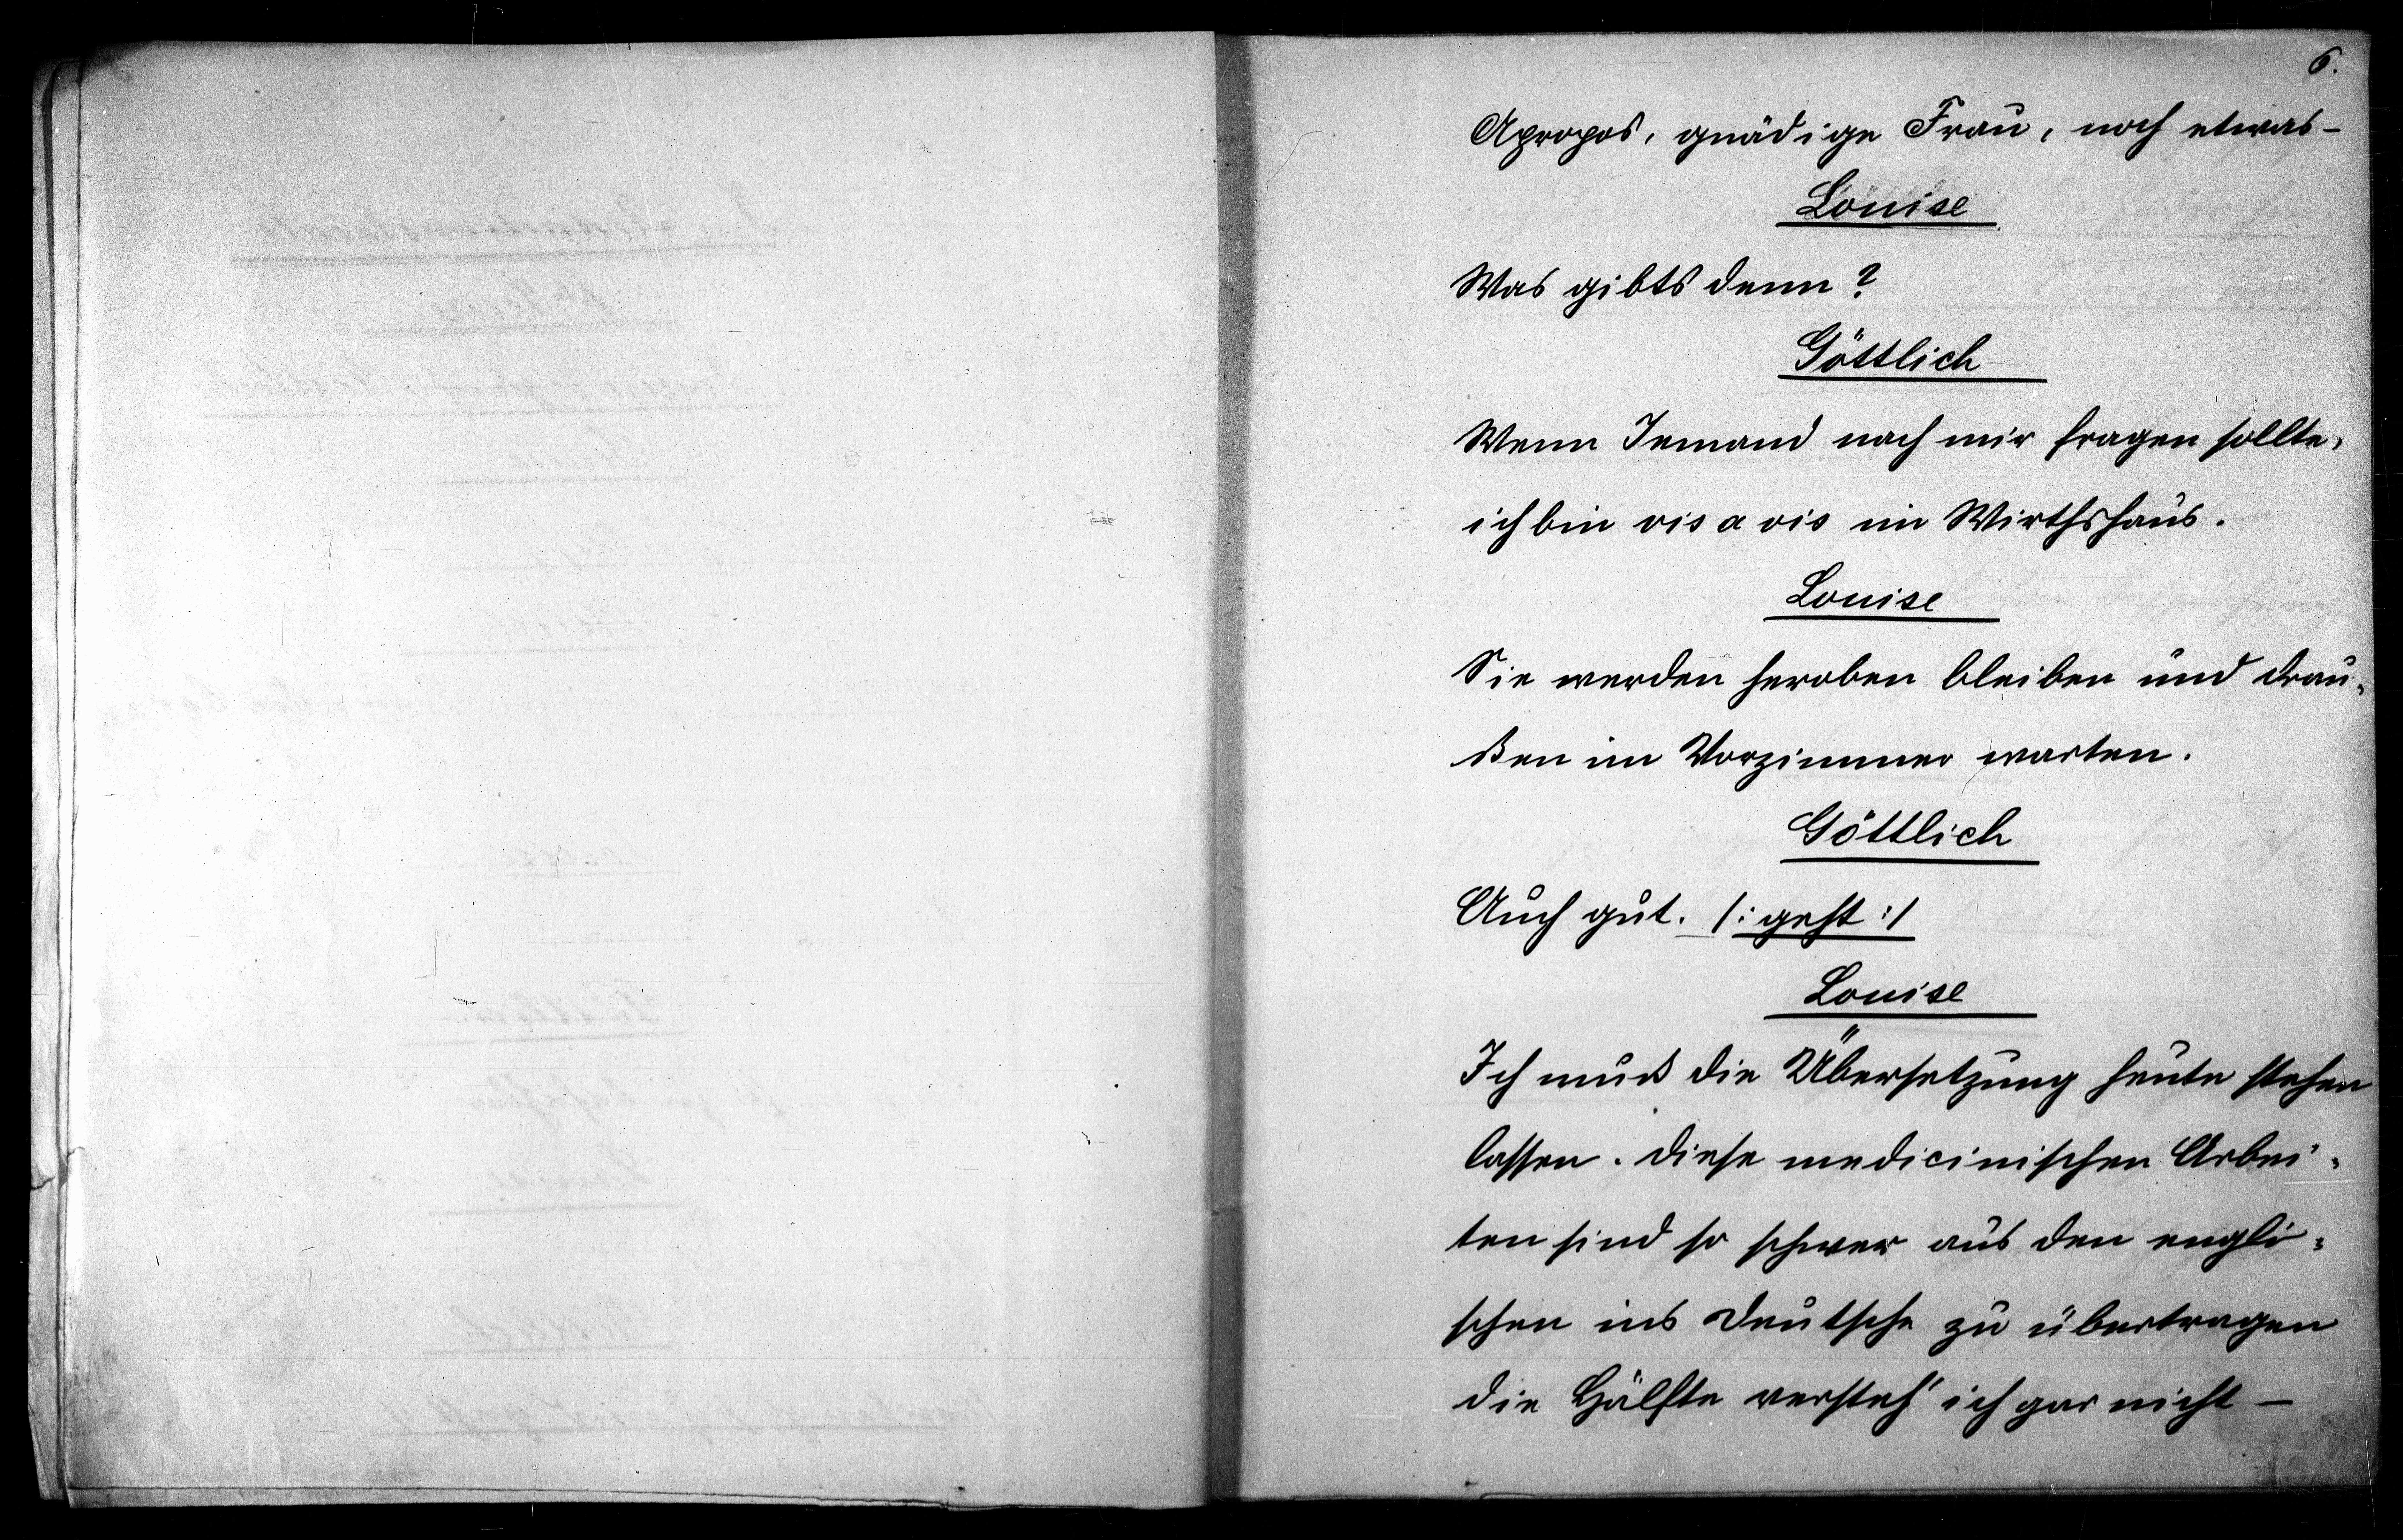 6.
Apropos, gnädige Frau, noch etwas-
Louise
Was gibts denn?
Göttlich
Wenn Jemand nach mir fragen sollte,
ich bin vis a vis im Wirthshaus.
Louise
Sie werden heroben bleiben und drau-
ßen im Vorzimmer warten.
Göttlich
Auch gut. /: geht :/
Louise
Ich muß die Übersetzung heute stehen
lassen. Diese medicinischen Arbei-
ten sind so schwer aus den engli-
schen ins Deutsche zu übertragen
die Hälfte versteh' ich gar nicht —